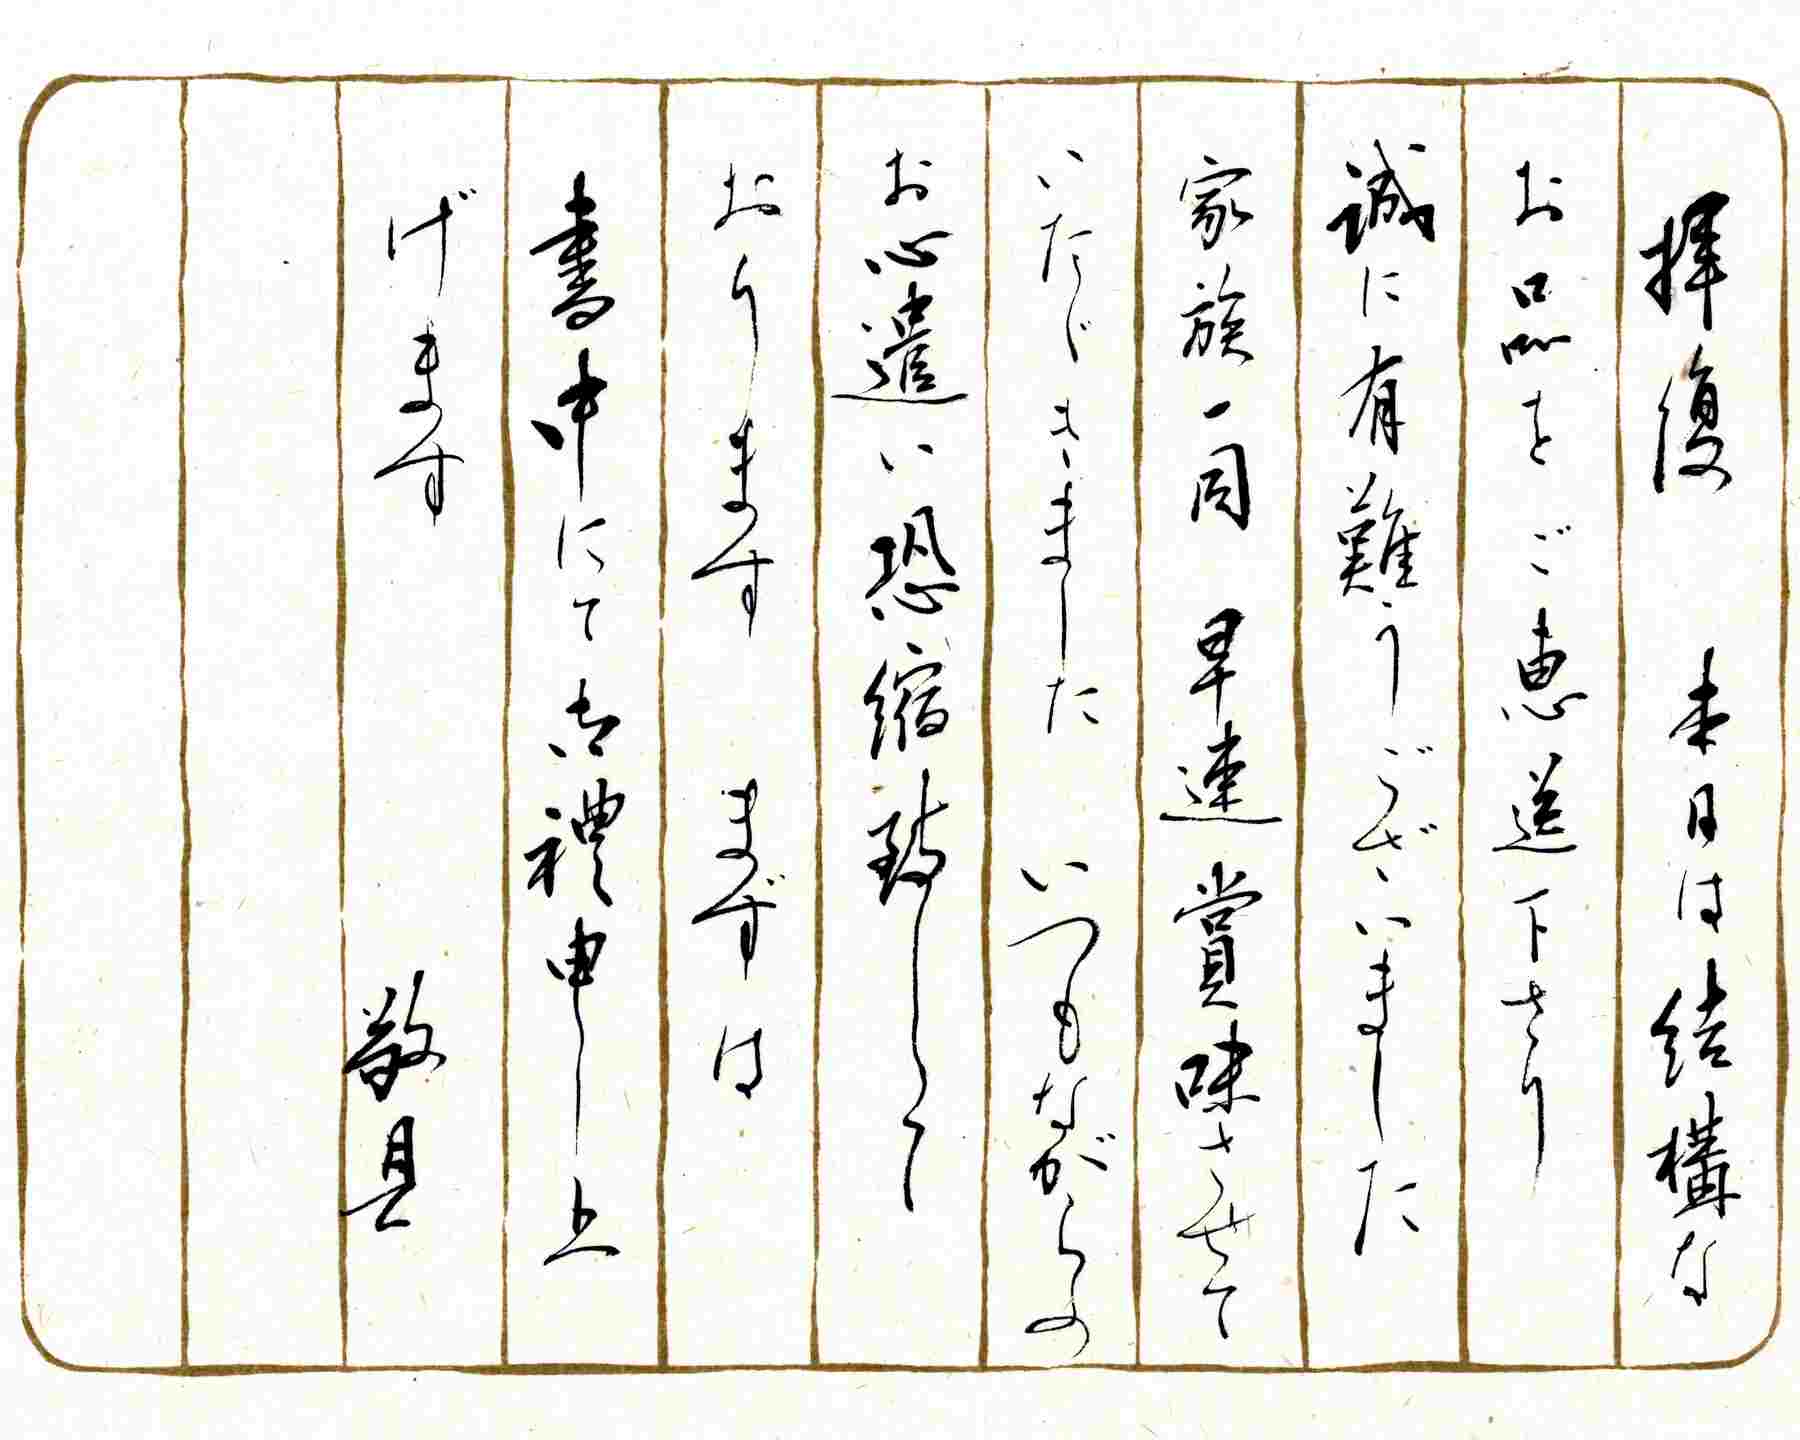 拝復　本日は結構な
お品をご恵送下さり
誠に有難うございました
家族一同　早速賞味させて
いただきました　いつもながらの
お心遣い恐縮致して
おります　まずは
書中にて御禮申し上
げます　敬具